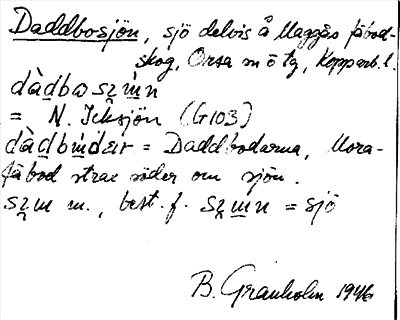 Daddbosjön, sjö delvis å Maggås fäbod-
skog, Orsa sn ö tg, Kopparb. l.
= N. Icksjön (G103)
= Daddbodarna, Mora-
fäbod strax söder om sjön.
m., best. f. = sjö
B. Granholm 1946